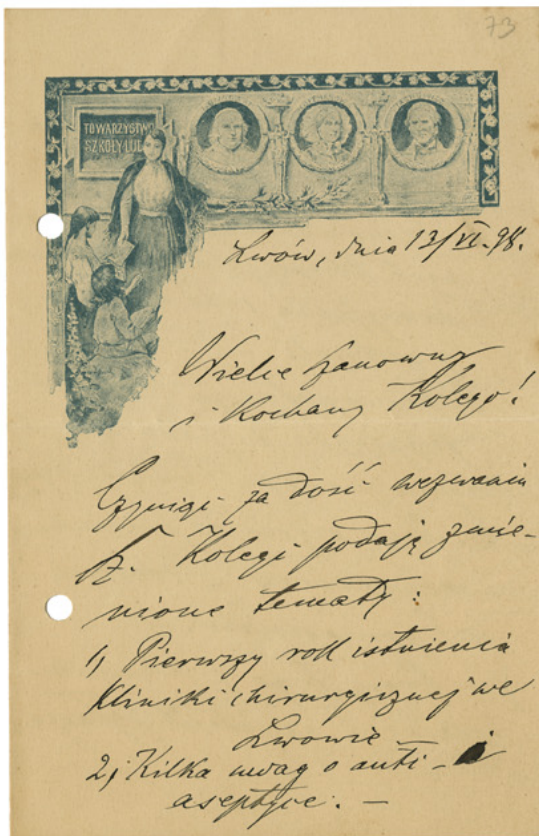 73
TOWARZYSTWO
SZKOŁY LUD
Lwów, dnia 13/VI. 98.
Wielce Szanowny
i Kochany Kolego!
Czyniąc za dość wezwaniu
Sz. Kolegi podaję zmie-
nione tematy:
1, Pierwszy rok istnienia
Kliniki chirurgicznej we
Lwowie —
2, Kilka uwag o anti- i
aseptyce. —